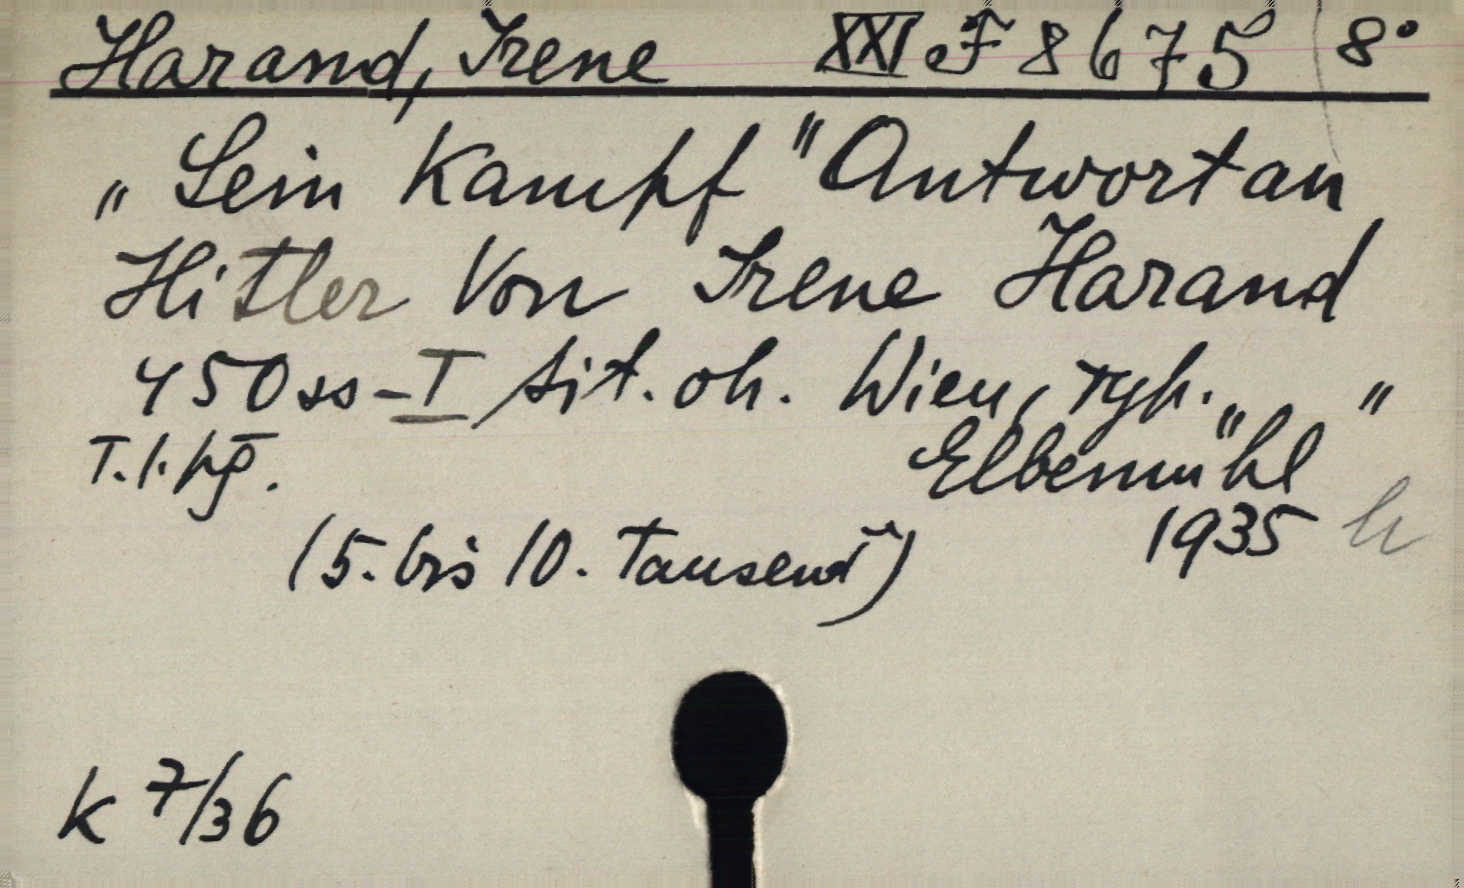 Harand, Irene XXI F 8675 8°
„Sein Kampf" Antwort an
Hitler Von Irene Harand
450 ss - I, sit. oh. Wien, typ. „ "
T. l. pg. Elbemühl
1935
(5. bis 10. Tausend)
K 7/36